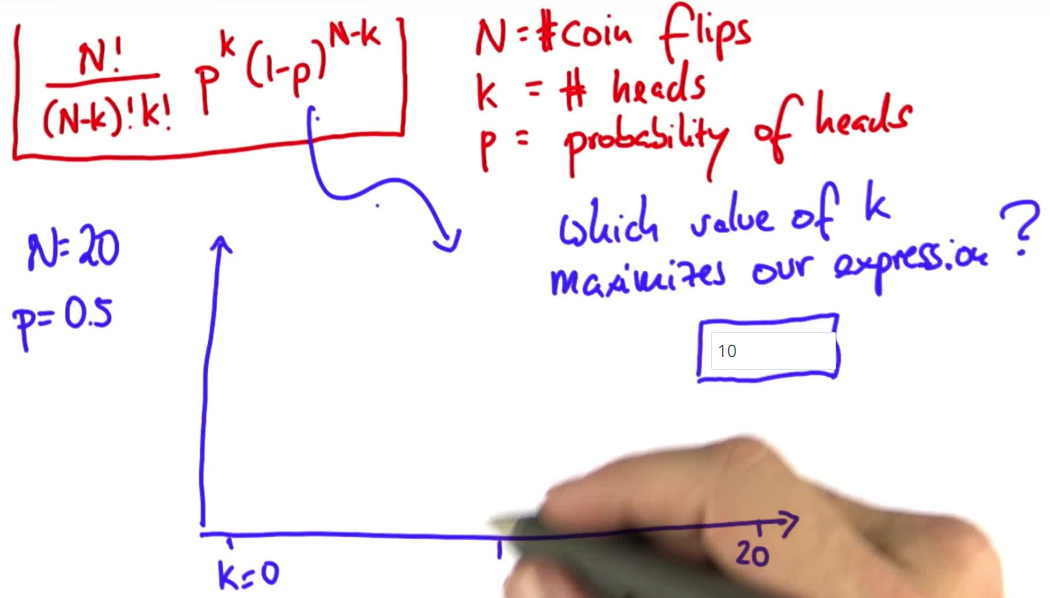 N!
(N-k)!k! p^k (1-p)^N-k
N = #coin flips
k = # heads
p = probability of heads
N=20
p=0.5
Which value of k
maximizes our expression ?
10
k=0
20